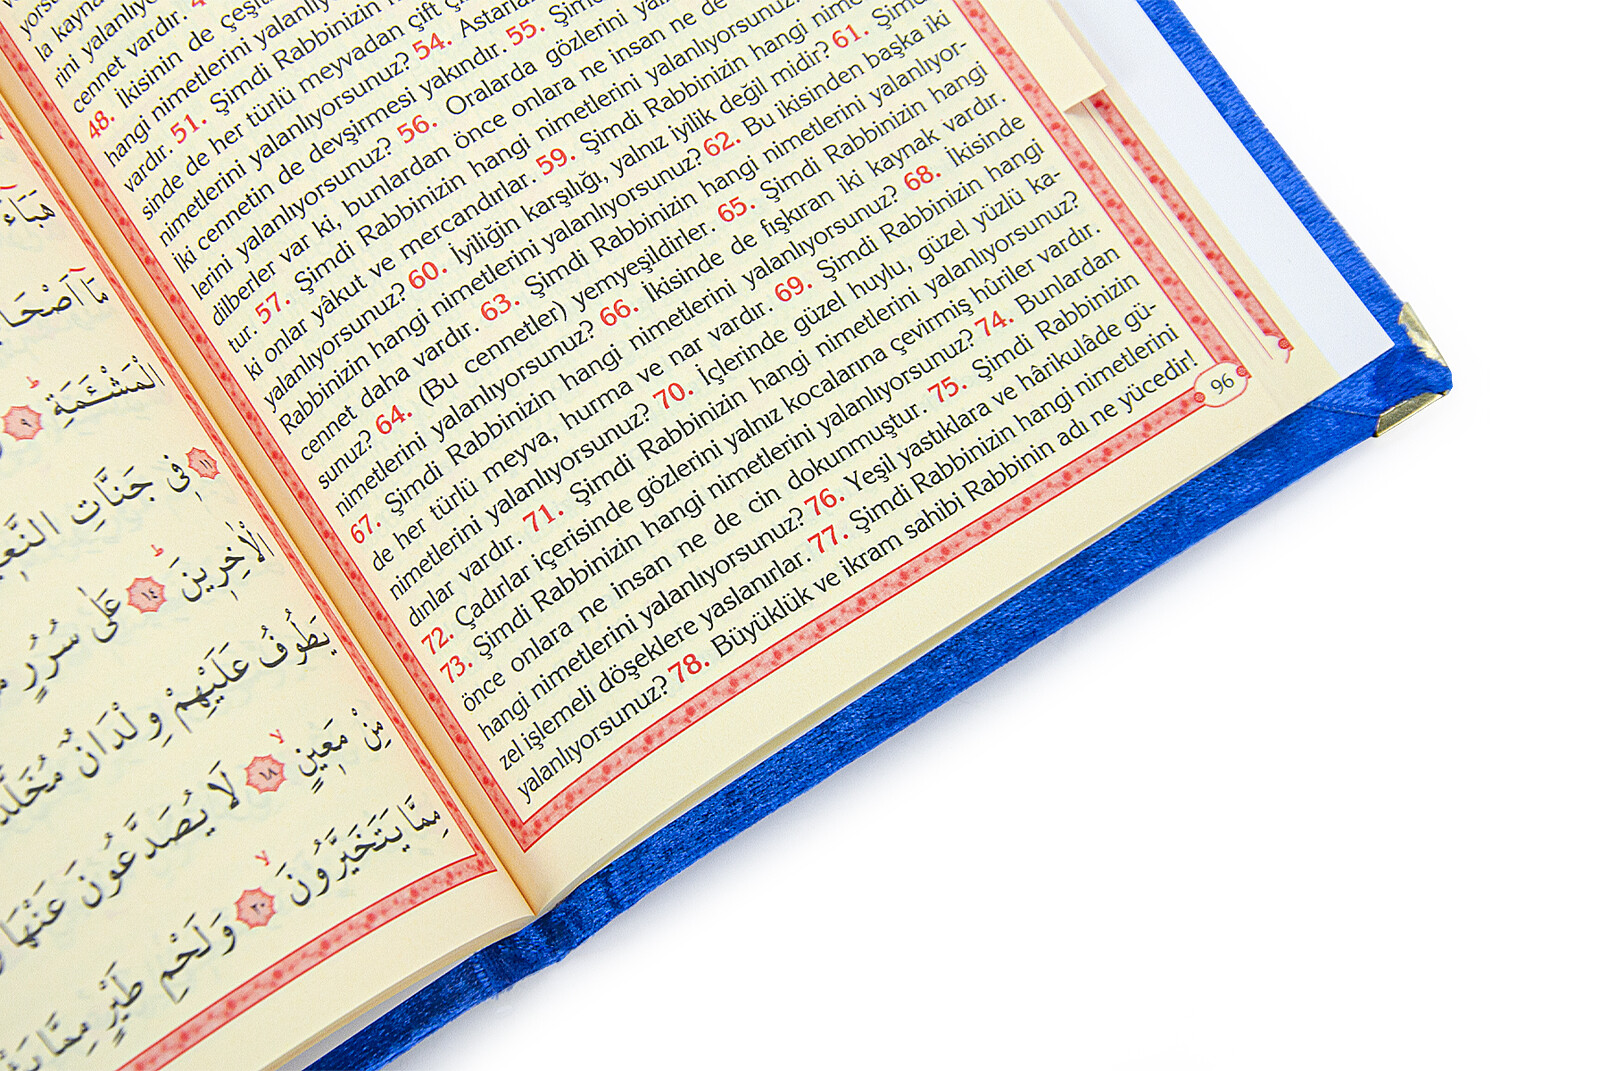 la
cennet vardır.
48. İkisinin de
hangi nimetlerini
vardır. 51. Şimdi Rabbinizin
sinde de her türlü meyvadan çift
nimetlerini yalanlıyorsunuz? 54.
İki cennetin de devşirmesi yakındır. 55.
lerini yalanlıyorsunuz? 56. Oralarda gözlerini
dilberler var ki, bunlardan önce onlara ne insan ne de
tur. 57. Şimdi Rabbinizin hangi nimetlerini yalanlıyorsunuz
ki onlar yâkut ve mercandırlar. 59. Şimdi Rabbinizin hangi
yalanlıyorsunuz? 60. İyiliğin karşılığı, yalnız iyilik değil midir? 61.
Rabbinizin hangi nimetlerini yalanlıyorsunuz? 62. Bu ikisinden başka iki
cennet daha vardır. 63. Şimdi Rabbinizin hangi nimetlerini yalanlıyor-
sunuz? 64. (Bu cennetler) yemyeşildirler. 65. Şimdi Rabbinizin hangi
nimetlerini yalanlıyorsunuz? 66. İkisinde de fışkıran iki kaynak vardır.
67. Şimdi Rabbinizin hangi nimetlerini yalanlıyorsunuz? 68. İkisinde
de her türlü meyva, hurma ve nar vardır. 69. Şimdi Rabbinizin hangi
nimetlerini yalanlıyorsunuz? 70. İçlerinde güzel huylu, güzel yüzlü ka-
dınlar vardır. 71. Şimdi Rabbinizin hangi nimetlerini yalanlıyorsunuz?
72. Çadırlar içerisinde gözlerini yalnız kocalarına çevirmiş hûriler vardır.
73. Şimdi Rabbinizin hangi nimetlerini yalanlıyorsunuz? 74. Bunlardan
önce onlara ne insan ne de cin dokunmuştur. 75. Şimdi Rabbinizin
hangi nimetlerini yalanlıyorsunuz? 76. Yeşil yastıklara ve hârikulâde gü-
zel işlemeli döşeklere yaslanırlar. 77. Şimdi Rabbinizin hangi nimetlerini
yalanlıyorsunuz? 78. Büyüklük ve ikram sahibi Rabbinin adı ne yücedir!
96
مَٓا
الْمَشْـَٔمَةِ ٩
١١ فٖي جَنَّاتِ
الْاٰخِرٖينَ ١٤ عَلٰى سُرُرٍ
يَطُوفُ عَلَيْهِمْ وِلْدَانٌ
مِنْ مَعٖينٍ ١٨ لَا يُصَدَّعُونَ عَنْهَا
مِمَّا يَتَخَيَّرُونَ ٢٠ وَلَحْمِ طَيْرٍ مِمَّا